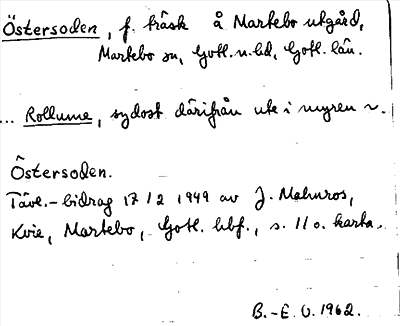 Östersoden, f. träsk å Martebo utgård,
Martebo sn, Gotl. n. hd, Gotl. län.
... Rollume, sydost därifrån ute i myren ~.
Östersoden.
Tävl.-bidrag 17/2 1949 av J. Malmros,
Kvie, Martebo, Gotl. hbf., s. 11 o. karta.
B.-E. O. 1962.